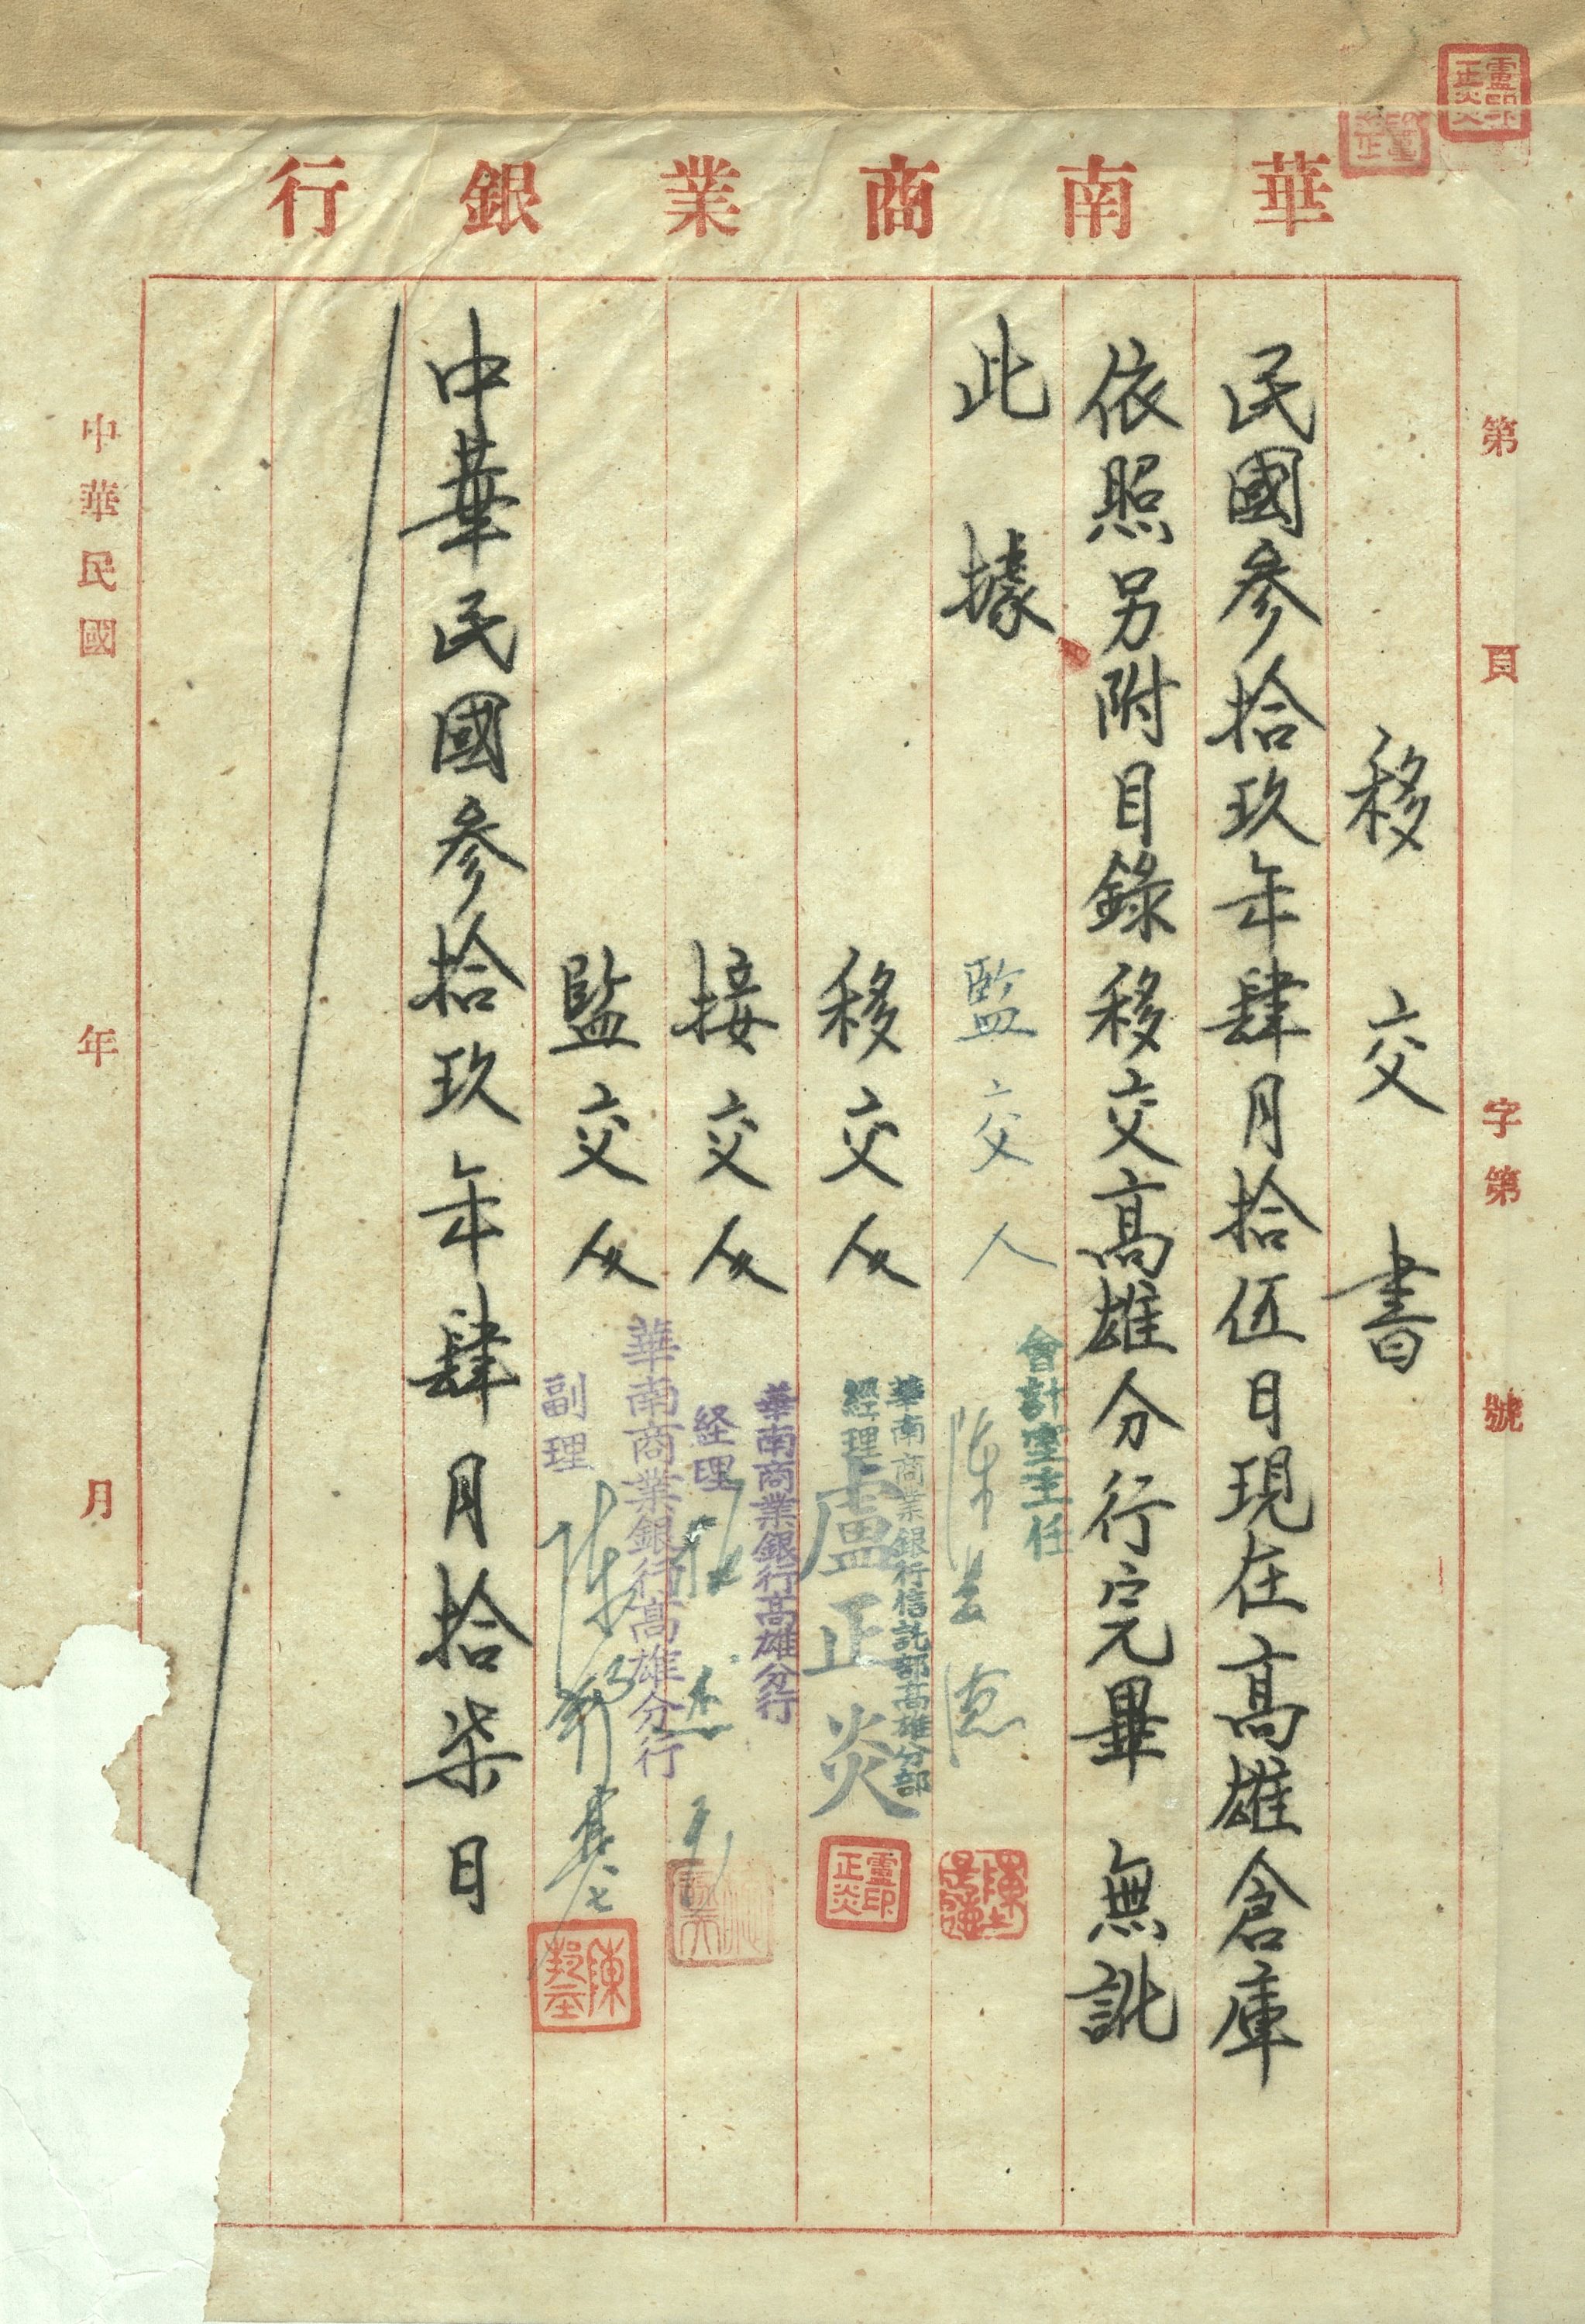 華南商業銀行
第 頁 字第 號
移交書
民國參拾玖年肆月拾伍日現在高雄倉庫
依照另附目錄移交高雄分行完畢無訛
此據
會計室主任
監交人 陳
華南商業銀行信託部高雄分部
移交人 經理 盧正炎
盧印正炎
華南商業銀行高雄分行
接交人 経理
華南商業銀行高雄分行
監交人 副理 陳
中華民國參拾玖年肆月拾柒日
中華民國 年 月